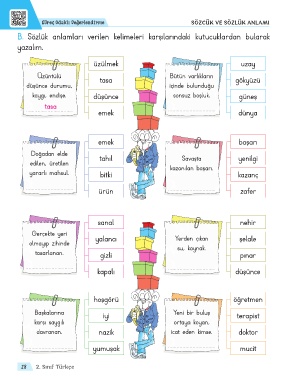 Süreç Odaklı Değerlendirme
SÖZCÜK VE SÖZLÜK ANLAMI
B. Sözlük anlamları verilen kelimeleri karşılarındaki kutucuklardan bularak
yazalım.
Üzüntülü
düşünce durumu,
kaygı, endişe.
tasa
üzülmek
tasa
düşünce
emek
Bütün varlıkların
içinde bulunduğu
sonsuz boşluk.
uzay
gökyüzü
güneş
dünya
Doğadan elde
edilen, üretilen
yararlı mahsul.
emek
tahıl
bitki
ürün
Savaşta
kazanılan başarı.
başarı
yenilgi
kazanç
zafer
Gerçekte yeri
olmayıp zihinde
tasarlanan.
sanal
yalancı
gizli
kapalı
Yerden çıkan
su, kaynak.
nehir
şelale
pınar
düşünce
Başkalarına
karşı saygılı
davranan.
hoşgörü
iyi
nazik
yumuşak
Yeni bir buluş
ortaya koyan,
icat eden kimse.
öğretmen
terapist
doktor
mucit
28
2. Sınıf Türkçe